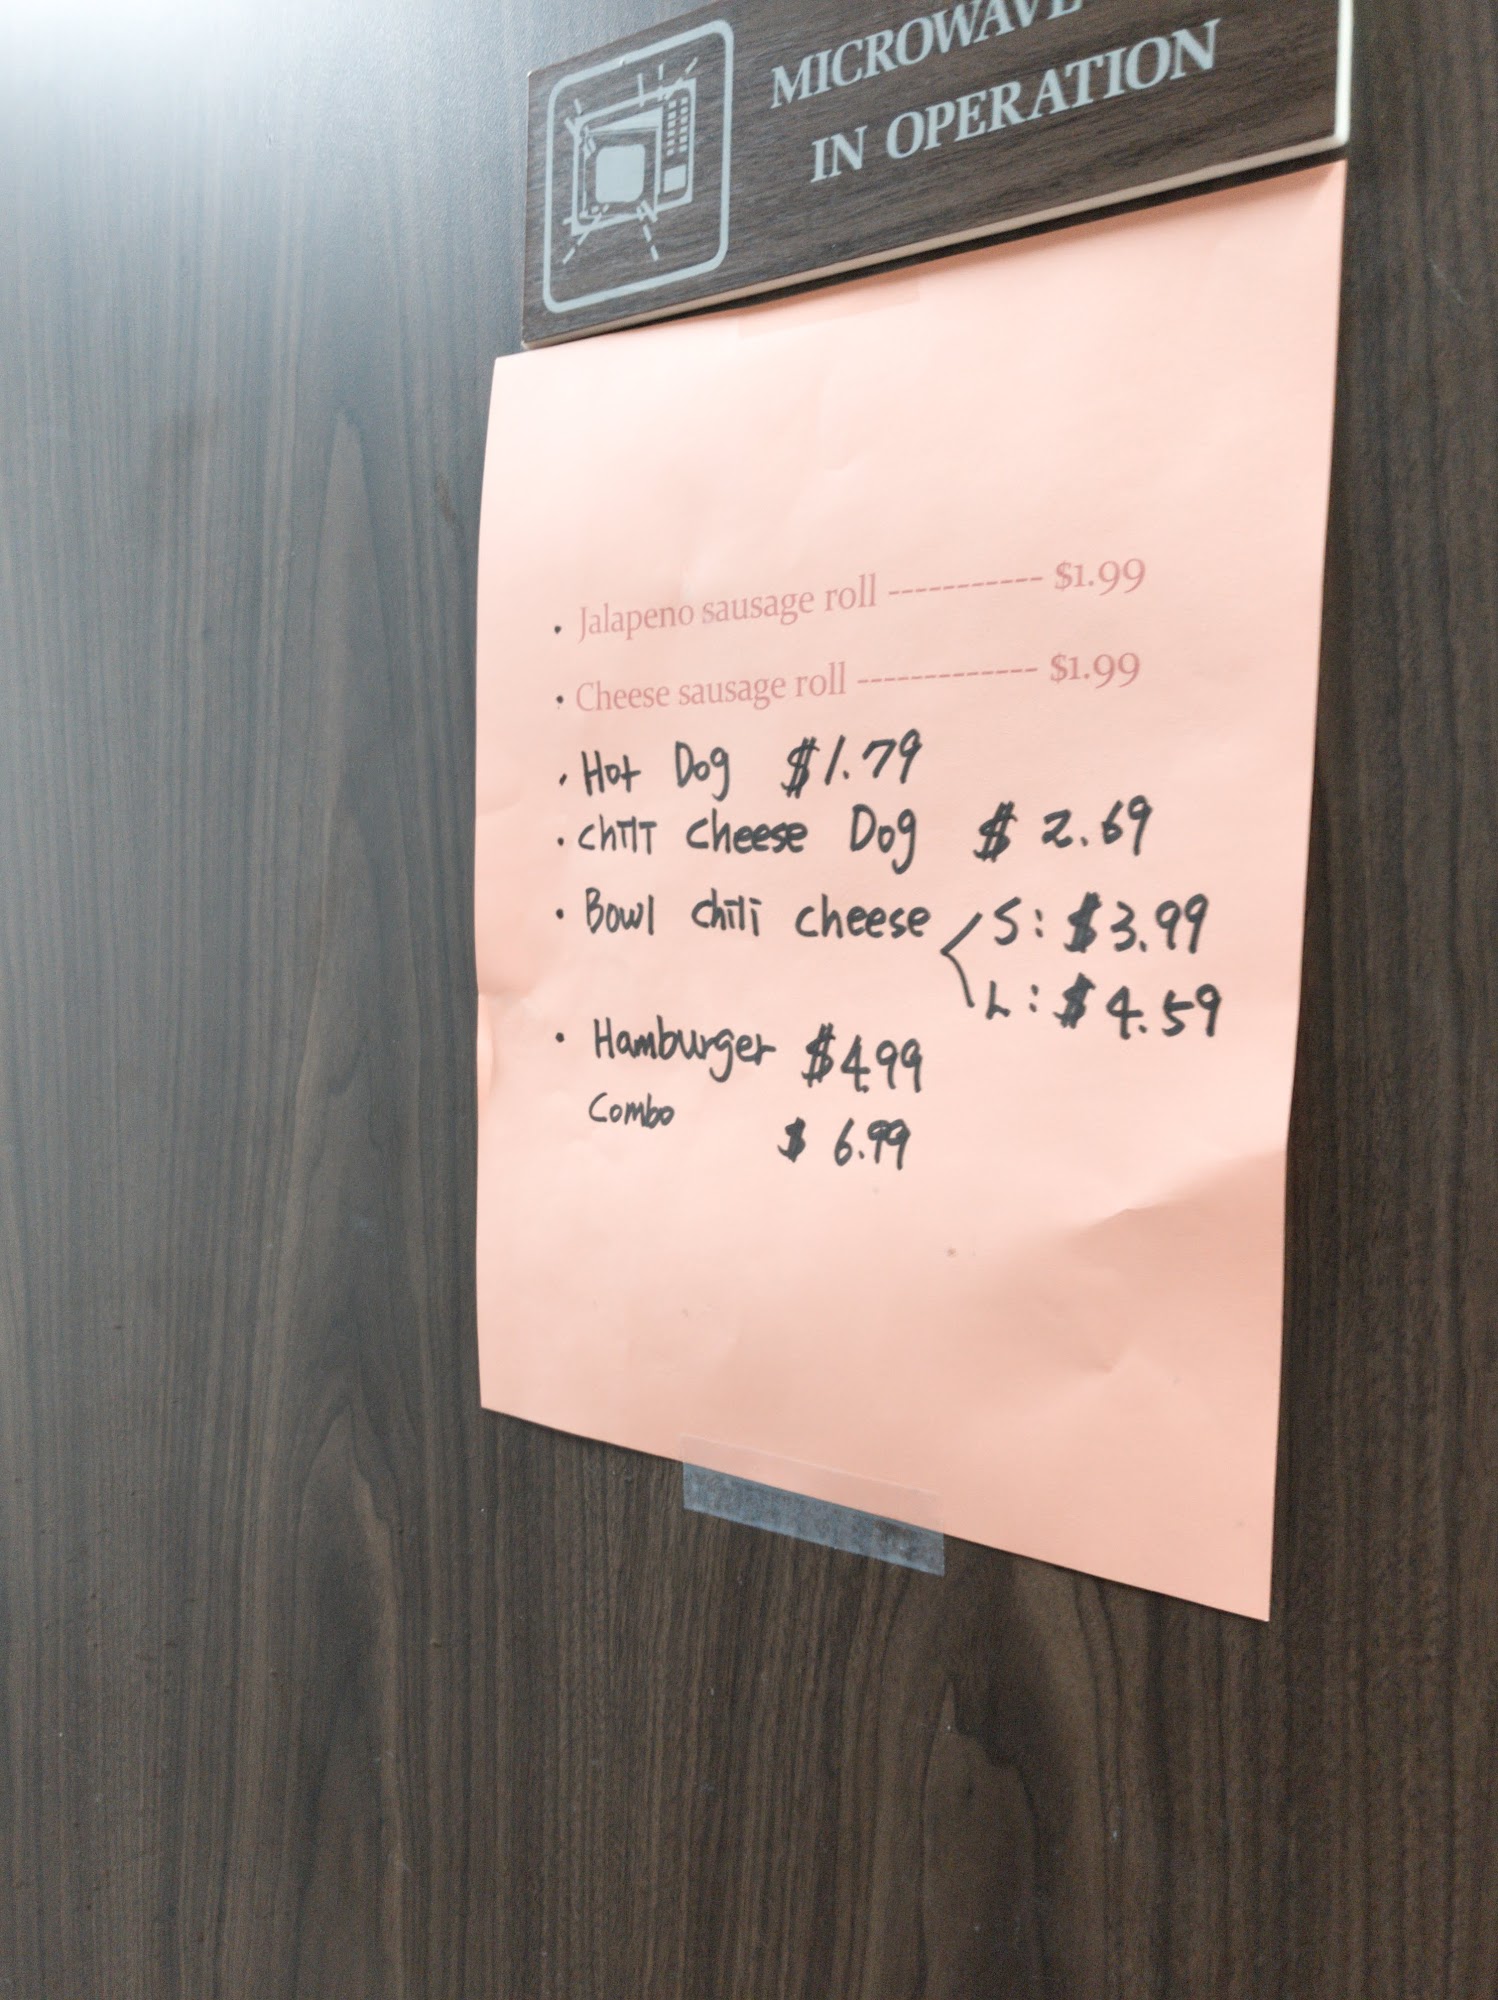 MICROWAVE
IN OPERATION
· Jalapeno sausage roll ----------- $1.99
· Cheese sausage roll ------------- $1.99
· Hot Dog $1.79
· chili cheese Dog $ 2.69
· Bowl chili cheese < S: $3.99
L: $4.59
· Hamburger $4.99
Combo $ 6.99